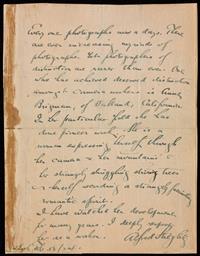 Every one photographs now a days. There
are ever increasing myriads of
photographs. Yet photographers of
distinction are rarer than ever. One
who has achieved deserved distinction
amongst camera workers is Annie
Brigman, of Oakland, California.
In her particular field she has
done pioneer work. She is a
woman expressing herself through
her camera & her mountains &
strangely struggling shining trees
& herself sending a strangely
romantic spirit.
I have watched her development
for many years. I deeply respect
her as a worker.
Alfred Stieglitz